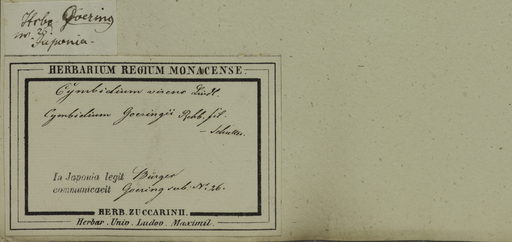 Herb. Goering
no. 26.
Japonia.
HERBARIUM REGIUM MONACENSE.
Cymbidium virens Lindl.
Cymbidium Goeringii Rchb. fil.
In Japonia legit Bürger
communicavit Goering sub No. 26.
HERB. ZUCCARINII.
Herbar. Univ. Ludov. Maximil.